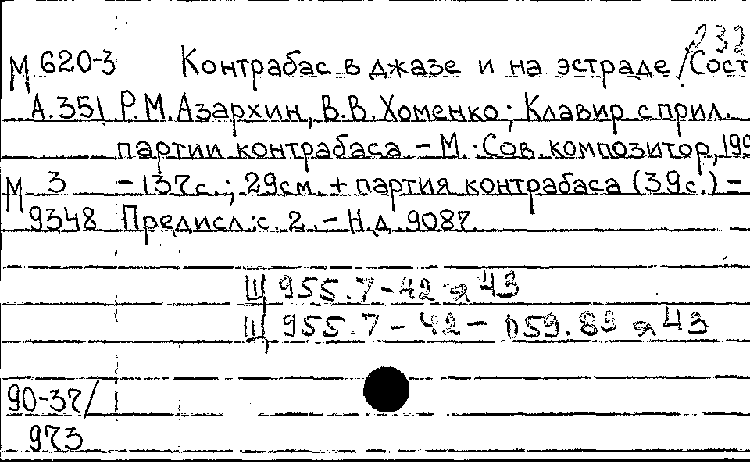 232
М 620-3 Контрабас в джазе и на эстраде /Сост
А.351 Р.М.Азархин, В.В.Хоменко; Клавир с прил.
партии контрабаса – М.:Сов.композитор, 199
М 3 – 137с.; 29см. + партия контрабаса (39с.) –
9348 Предисл.:с. 2. – Н.д. 9087.
Щ 955.7-42 я 43
Щ 955.7 – 42 – 059.89 я 43
90-37/
973